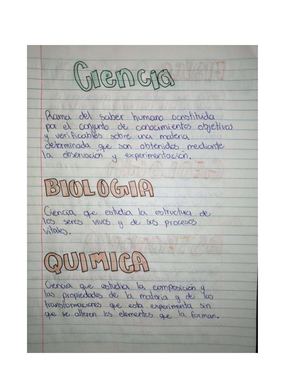 Ciencia
Rama del saber humano constituida
por el conjunto de conocimientos objetivos
y verificables sobre una materia
determinada que son obtenidos mediante
la observación y experimentación.
BIOLOGIA
Ciencia que estudia la estructura de
los seres vivos y de sus procesos
vitales.
QUIMICA
Ciencia que estudia la composición y
las propiedades de la materia y de las
transformaciones que esta experimenta sin
que se alteren los elementos que la forman.